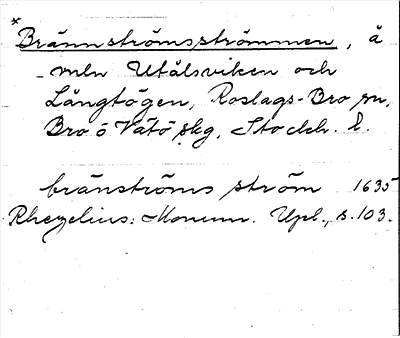 * Brännströmsströmmen, å
mln Utålsviken och
Långtögen, Roslags-Bro sn,
Bro o Vätö skg, Stockh. l.
bränströms ström 1635
Rhezelius: Monum. Upl., s. 103.